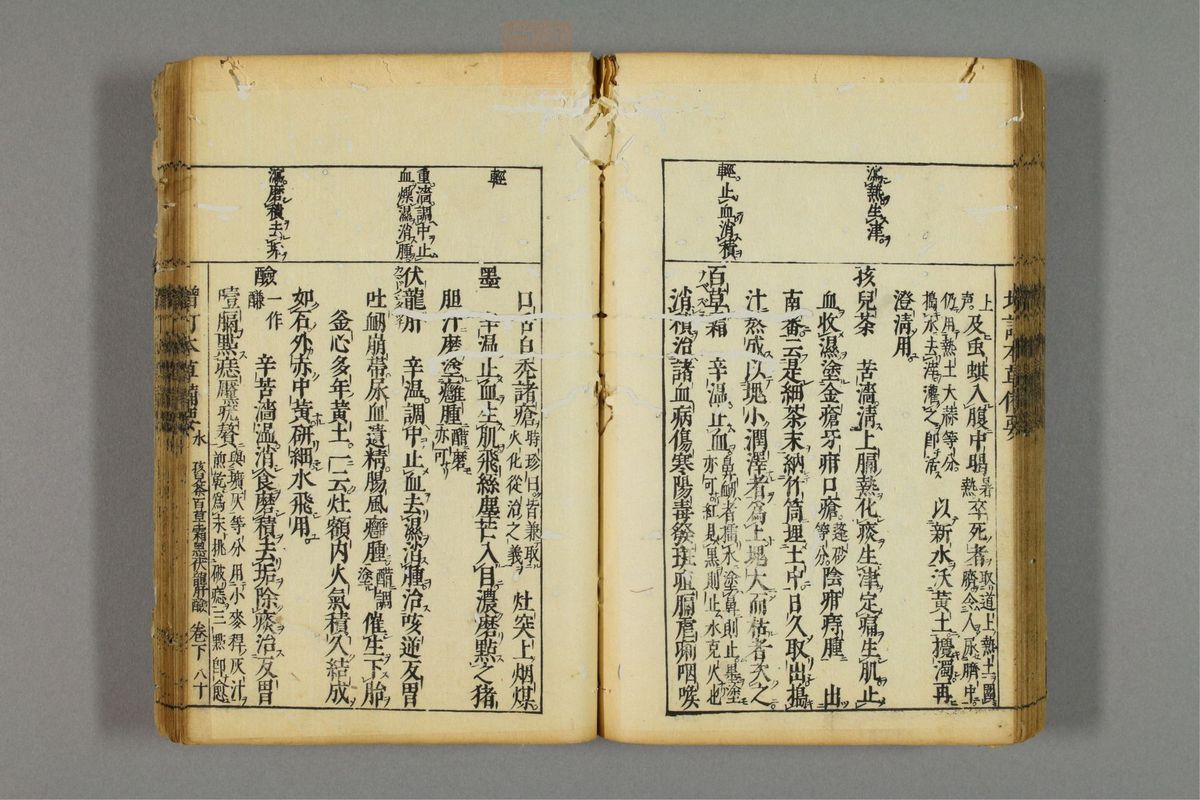 瀉熱生津
輕止血消積
上
声及虫蟥入腹中暍暑熱卒死者取道上熱土圍臍令人尿臍中
仍用熱土大蒜等分搗水去滓灌之即活以新水沃黃土攪濁再
澄清用
孩兒茶 苦濇清上膈熱化痰生津定痛生肌止
血收濕塗金瘡牙疳口瘡蓬砂等分陰疳痔腫 出
南番云是細茶末納竹筒埋土中日久取出搗
汁熬成以塊小潤澤者爲上塊大而枯者次之
百草霜 辛溫止血鼻衄者擂水塗鼻則止患塗亦可紅見黑則止水克火也
消積治諸血病傷寒陽毒發斑疸膈瘧痢咽喉
輕
重濇調中止血燥濕消腫
瀉磨積去垢
口舌白禿諸瘡時珍曰皆兼取火化從治之義 灶突上烟煤
墨 辛溫止血生肌飛絲塵芒入目濃磨點之猪
胆汁磨塗癰腫醋磨亦可
伏龍肝 辛溫調中止血去濕消腫治咳逆反胃
吐衄崩帶尿血遺精腸風癰腫醋調塗催生下胎
釜心多年黃土一云灶額內火氣積久結成
如石外赤中黃研細水飛用
鹼一作鹻 辛苦濇溫消食磨積去垢除痰治反胃
噎膈點痣黶疣贅與壙灰等分用小麥稈灰汁煎乾爲末挑破痣三點即愈
增訂本草備要 水 孩兒茶百草霜墨伏龍肝鹼 卷下 八十